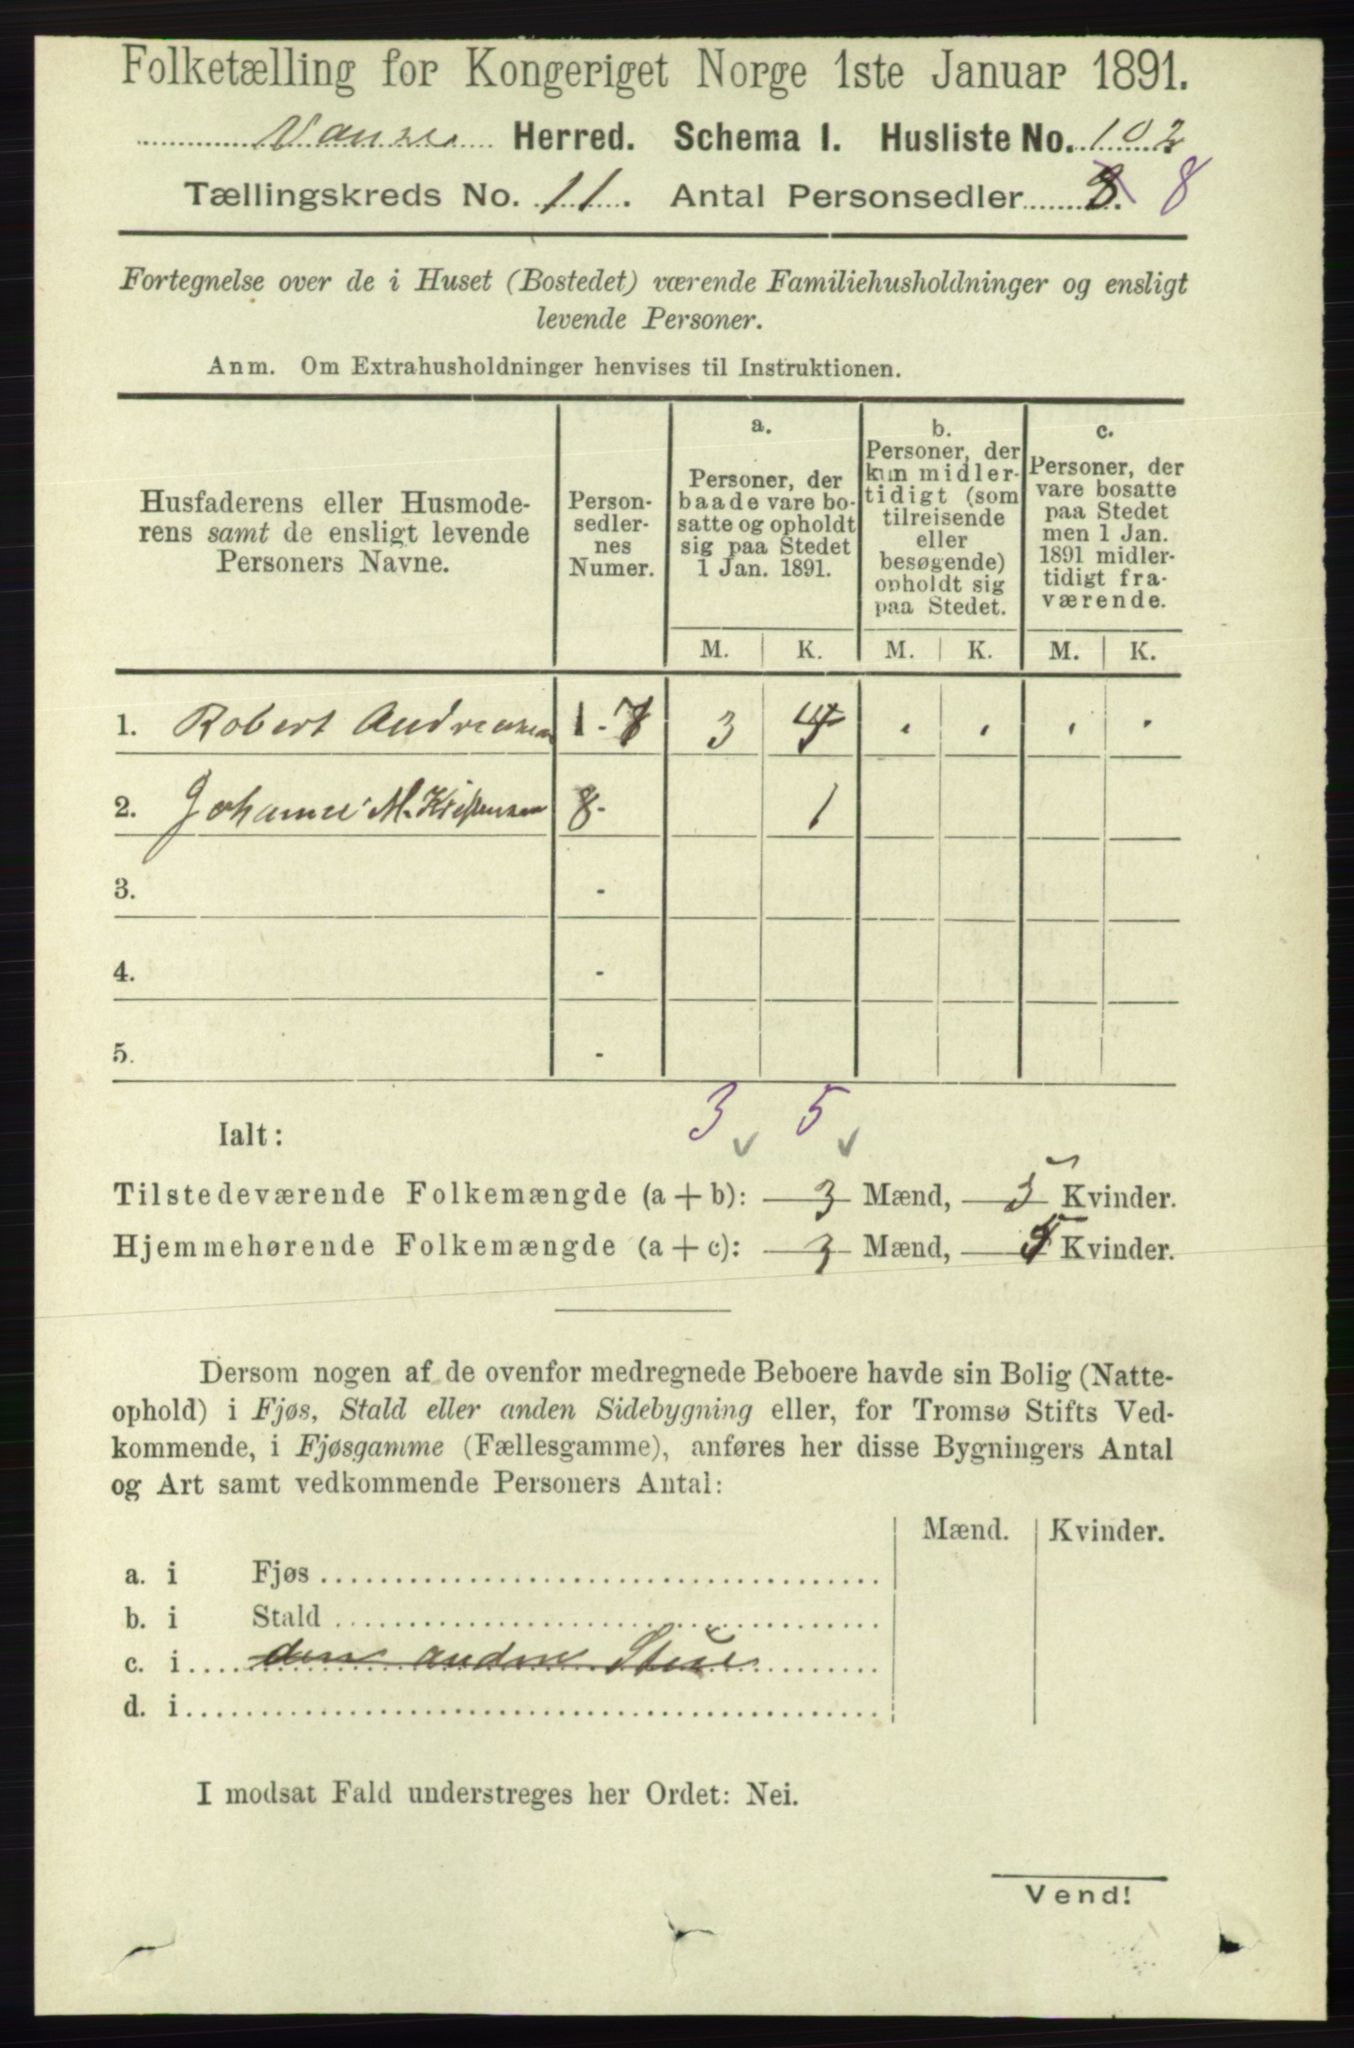 Folketælling for Kongeriget Norge 1ste Januar 1891.
Vanse Herred. Schema I. Husliste No. 102
Tællingskreds No. 11. Antal Personsedler 8. 8
Fortegnelse over de i Huset (Bostedet) værende Familiehusholdninger og ensligt
levende Personer.
Anm. Om Extrahusholdninger henvises til Instruktionen.
Husfaderens eller Husmode-
rens samt de ensligt levende
Personers Navne.
Person-
sedler-
nes
Numer.
a.
Personer, der
baade vare bo-
satte og opholdt
sig paa Stedet
1 Jan. 1891.
b.
Personer, der
kun midler-
tidigt (som
tilreisende
eller
besøgende)
opholdt sig
paa Stedet.
c.
Personer, der
vare bosatte
paa Stedet
men 1 Jan.
1891 midler-
tidigt fra-
værende.
M. K. M. K. M. K.
1. Robert Andreasen 1-7 3 4 . . . .
2. Johanne M. Kristensen 8- 1
3. -
4. -
5. -
3 5
Ialt:
Tilstedeværende Folkemængde (a + b): 3 Mænd, 5 Kvinder.
Hjemmehørende Folkemængde (a + c): 3 Mænd, 5 Kvinder.
Dersom nogen af de ovenfor medregnede Beboere havde sin Bolig (Natte-
ophold) i Fjøs, Stald eller anden Sidebygning eller, for Tromsø Stifts Ved-
kommende, i Fjøsgamme (Fællesgamme), anføres her disse Bygningers Antal
og Art samt vedkommende Personers Antal:
Mænd. Kvinder.
a. i Fjøs
b. i Stald
c. i den anden Stue
d. i
I modsat Fald understreges her Ordet: Nei.
Vend!